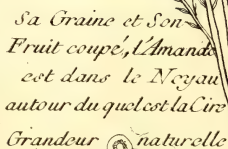 Sa Graine et Son
Fruit coupé, l'Amande
est dans le Noyau
autour du quel est la Cire
Grandeur naturelle